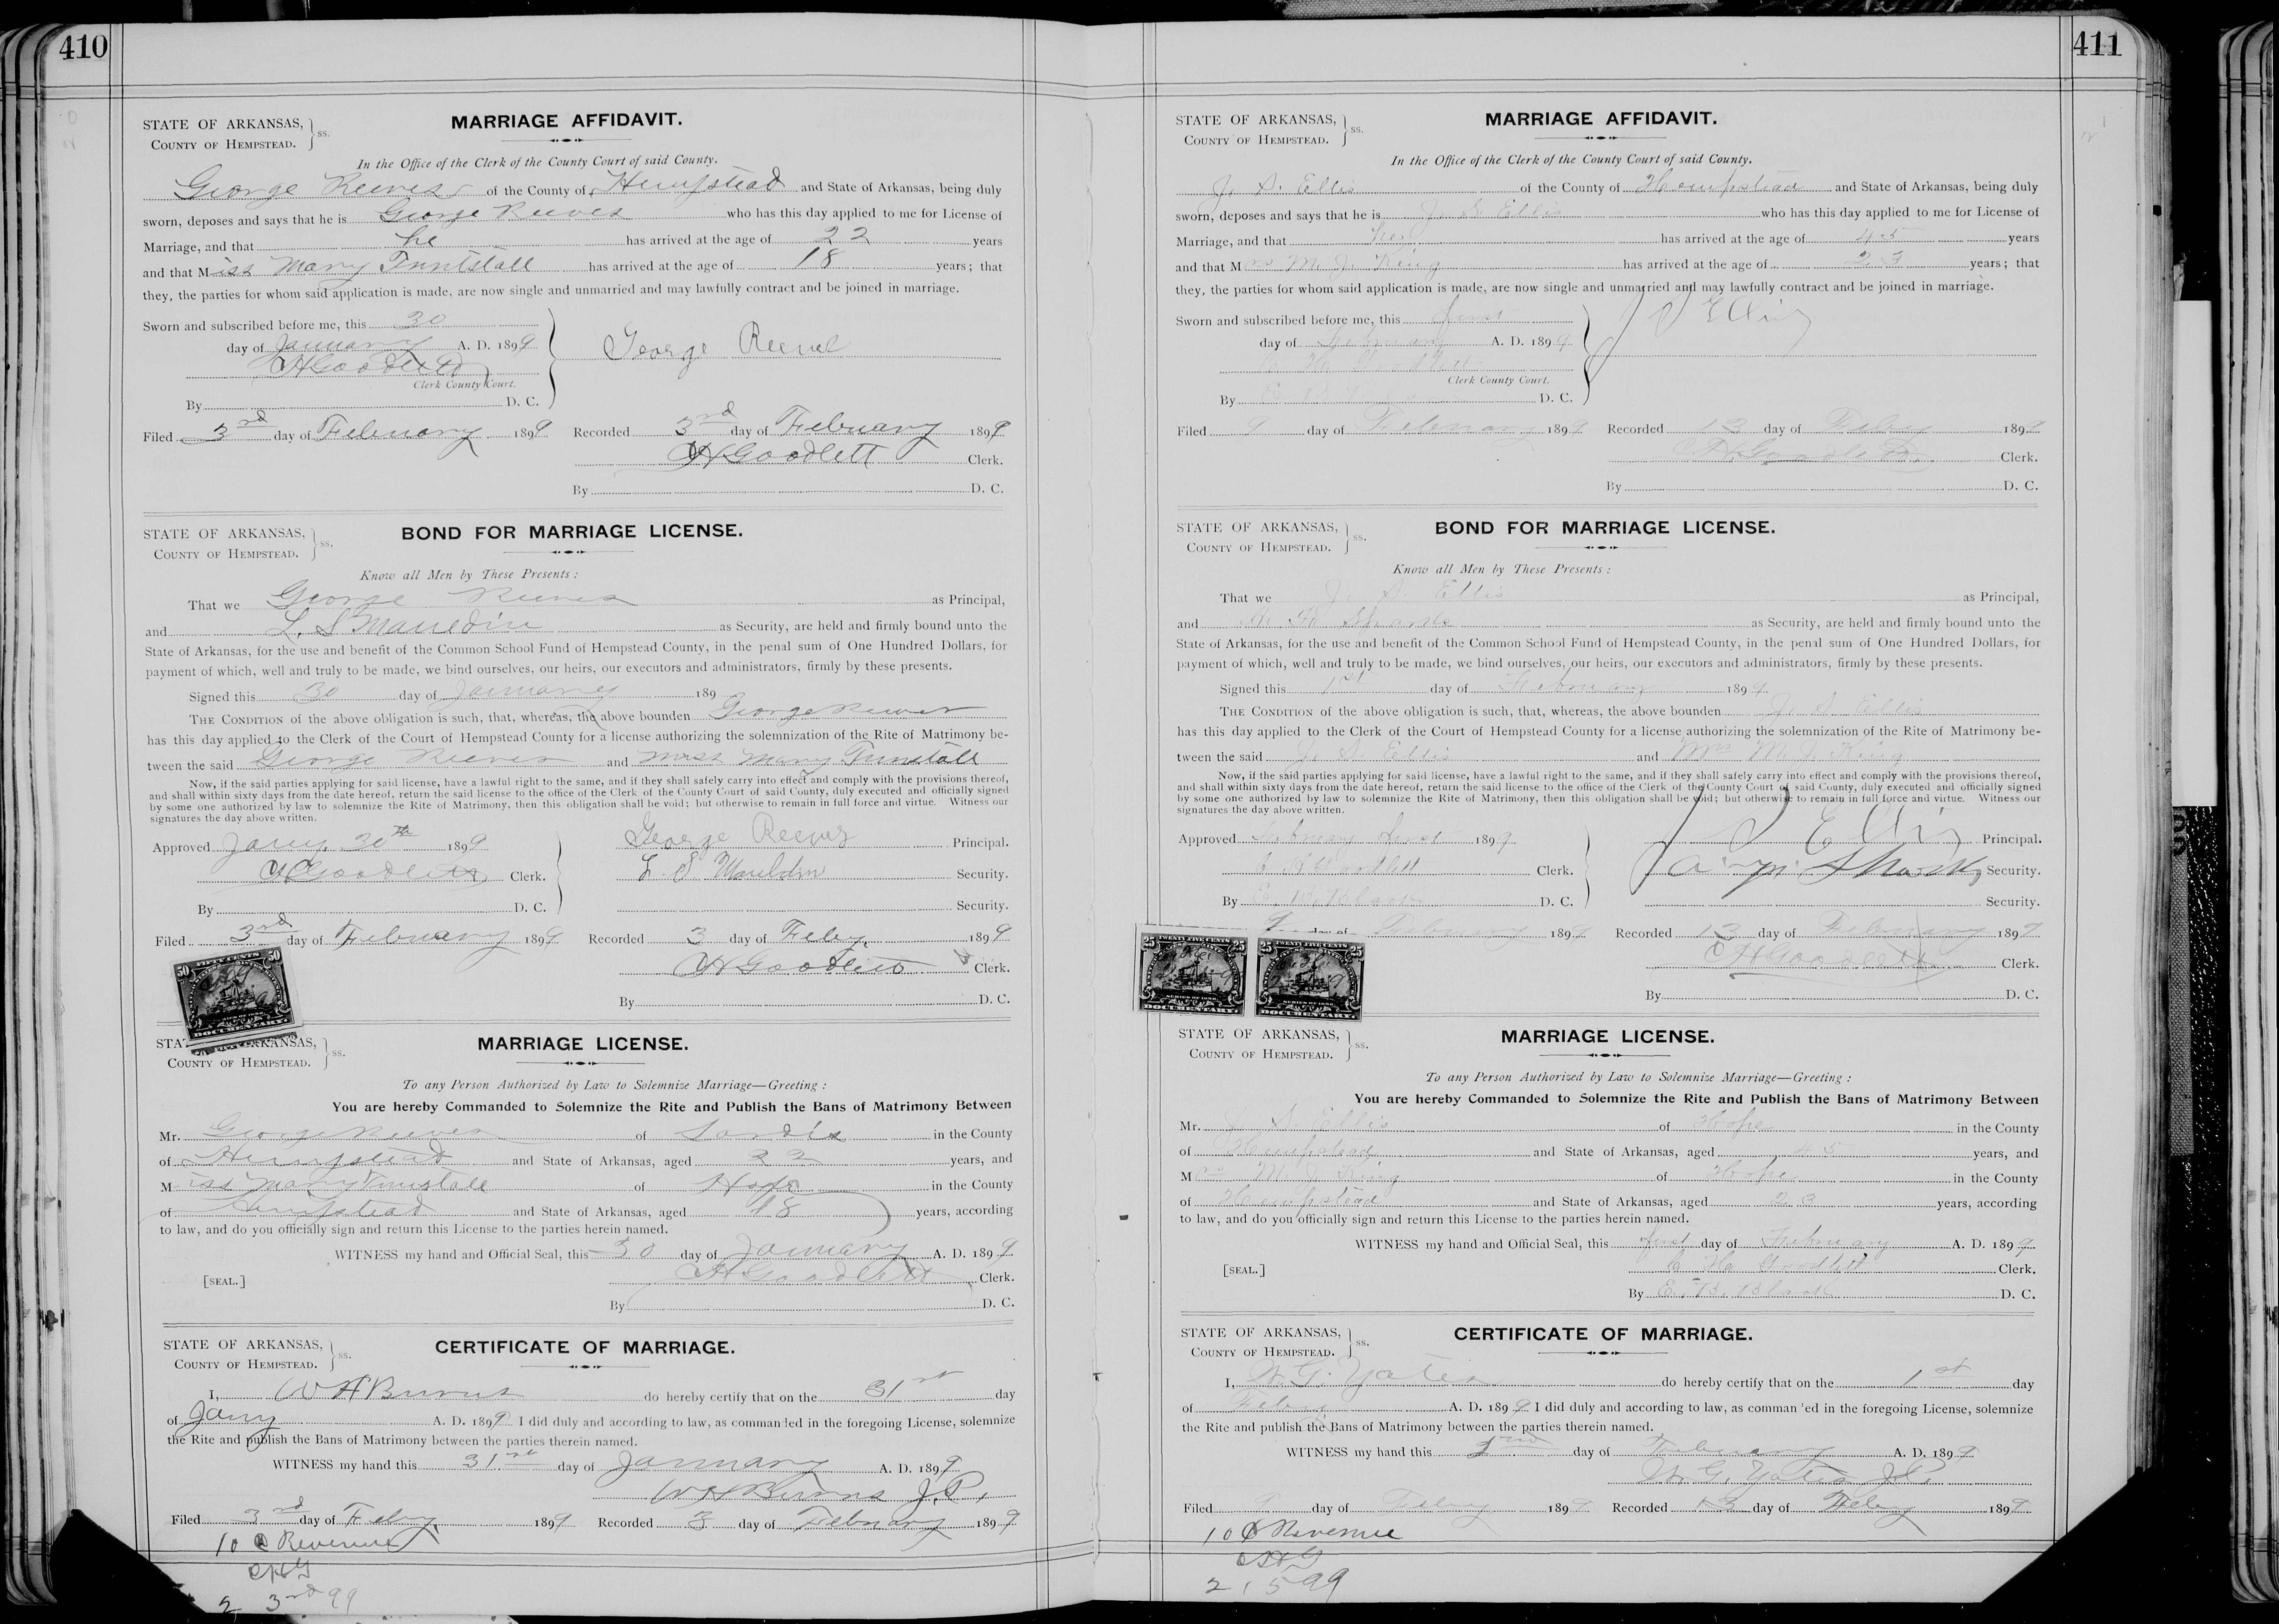 410
STATE OF ARKANSAS, } ss.
COUNTY OF HEMPSTEAD.
MARRIAGE AFFIDAVIT.
In the Office of the Clerk of the County Court of said County.
George Reeves of the County of Hempstead and State of Arkansas, being duly
sworn, deposes and says that he is George Reeves who has this day applied to me for License of
Marriage, and that he has arrived at the age of 22 years
and that Miss Mary Tunstall has arrived at the age of 18 years; that
they, the parties for whom said application is made, are now single and unmarried and may lawfully contract and be joined in marriage.
Sworn and subscribed before me, this 30
day of January A. D. 1899
George Reeves
CHGoodlett
Clerk County Court.
By D. C.
Filed 3rd day of February 1899 Recorded 3rd day of February 1899
CHGoodlett Clerk.
By D. C.
STATE OF ARKANSAS, } ss.
COUNTY OF HEMPSTEAD.
BOND FOR MARRIAGE LICENSE.
Know all Men by These Presents:
That we George Reeves as Principal,
and L. S Mauldin as Security, are held and firmly bound unto the
State of Arkansas, for the use and benefit of the Common School Fund of Hempstead County, in the penal sum of One Hundred Dollars, for
payment of which, well and truly to be made, we bind ourselves, our heirs, our executors and administrators, firmly by these presents.
Signed this 30 day of January 189
THE CONDITION of the above obligation is such, that, whereas, the above bounden George Reeves
has this day applied to the Clerk of the Court of Hempstead County for a license authorizing the solemnization of the Rite of Matrimony be-
tween the said George Reeves and Miss Mary Tunstall
Now, if the said parties applying for said license, have a lawful right to the same, and if they shall safely carry into effect and comply with the provisions thereof,
and shall within sixty days from the date hereof, return the said license to the office of the Clerk of the County Court of said County, duly executed and officially signed
by some one authorized by law to solemnize the Rite of Matrimony, then this obligation shall be void; but otherwise to remain in full force and virtue. Witness our
signatures the day above written.
Approved Jany 30th 1899
George Reeves Principal.
CHGoodlett Clerk.
L. S Mauldin Security.
By D. C.
Security.
Filed 3rd day of February 1899 Recorded 3 day of Feby. 1899
CHGoodlett Clerk.
By D. C.
50 FIFTY CENTS 50
DOCUMENTARY.
STATE OF ARKANSAS, } ss.
COUNTY OF HEMPSTEAD.
MARRIAGE LICENSE.
To any Person Authorized by Law to Solemnize Marriage—Greeting:
You are hereby Commanded to Solemnize the Rite and Publish the Bans of Matrimony Between
Mr. George Reeves of Sardis in the County
of Hempstead and State of Arkansas, aged 22 years, and
Miss Mary Tunstall of Hope in the County
of Hempstead and State of Arkansas, aged 18 years, according
to law, and do you officially sign and return this License to the parties herein named.
WITNESS my hand and Official Seal, this 30 day of January A. D. 1899
[SEAL.]
CHGoodlett Clerk.
By D. C.
STATE OF ARKANSAS, } ss.
COUNTY OF HEMPSTEAD.
CERTIFICATE OF MARRIAGE.
I, W H Burns do hereby certify that on the 31st day
of Jany A. D. 1899 I did duly and according to law, as commanded in the foregoing License, solemnize
the Rite and publish the Bans of Matrimony between the parties therein named.
WITNESS my hand this 31st day of January A. D. 1899
W H Burns J. P.
Filed 3rd day of Feby. 1899 Recorded 3 day of February 1899
10 ¢ Revenue
CHG
2 3rd 99
411
STATE OF ARKANSAS, } ss.
COUNTY OF HEMPSTEAD.
MARRIAGE AFFIDAVIT.
In the Office of the Clerk of the County Court of said County.
J. S. Ellis of the County of Hempstead and State of Arkansas, being duly
sworn, deposes and says that he is J. S. Ellis who has this day applied to me for License of
Marriage, and that he has arrived at the age of 45 years
and that Mrs M. J. King has arrived at the age of 23 years; that
they, the parties for whom said application is made, are now single and unmarried and may lawfully contract and be joined in marriage.
Sworn and subscribed before me, this first
J S Ellis
day of February A. D. 1899
C. H. Goodlett
Clerk County Court.
By E. B. Black D. C.
Filed 9 day of February 1899 Recorded 13 day of Feby 1899
CHGoodlett Clerk.
By D. C.
STATE OF ARKANSAS, } ss.
COUNTY OF HEMPSTEAD.
BOND FOR MARRIAGE LICENSE.
Know all Men by These Presents:
That we J. S. Ellis as Principal,
and as Security, are held and firmly bound unto the
State of Arkansas, for the use and benefit of the Common School Fund of Hempstead County, in the penal sum of One Hundred Dollars, for
payment of which, well and truly to be made, we bind ourselves, our heirs, our executors and administrators, firmly by these presents.
Signed this 1st day of February 1899
THE CONDITION of the above obligation is such, that, whereas, the above bounden J. S. Ellis
has this day applied to the Clerk of the Court of Hempstead County for a license authorizing the solemnization of the Rite of Matrimony be-
tween the said J. S. Ellis and Mrs M. J. King
Now, if the said parties applying for said license, have a lawful right to the same, and if they shall safely carry into effect and comply with the provisions thereof,
and shall within sixty days from the date hereof, return the said license to the office of the Clerk of the County Court of said County, duly executed and officially signed
by some one authorized by law to solemnize the Rite of Matrimony, then this obligation shall be void; but otherwise to remain in full force and virtue. Witness our
signatures the day above written.
Approved February first 1899
J S Ellis Principal.
C H Goodlett Clerk.
Security.
By E. B. Black D. C.
Security.
9 day of February 1899 Recorded 13 day of February 1899
CHGoodlett Clerk.
By D. C.
25 TWENTY FIVE CENTS 25
DOCUMENTARY.
25 TWENTY FIVE CENTS 25
DOCUMENTARY.
STATE OF ARKANSAS, } ss.
COUNTY OF HEMPSTEAD.
MARRIAGE LICENSE.
To any Person Authorized by Law to Solemnize Marriage—Greeting:
You are hereby Commanded to Solemnize the Rite and Publish the Bans of Matrimony Between
Mr. J. S. Ellis of Hope in the County
of Hempstead and State of Arkansas, aged 45 years, and
Mrs M. J. King of Hope in the County
of Hempstead and State of Arkansas, aged 23 years, according
to law, and do you officially sign and return this License to the parties herein named.
WITNESS my hand and Official Seal, this first day of February A. D. 1899
[SEAL.]
C. H. Goodlett Clerk.
By E. B. Black D. C.
STATE OF ARKANSAS, } ss.
COUNTY OF HEMPSTEAD.
CERTIFICATE OF MARRIAGE.
I, W. G. Yates do hereby certify that on the 1st day
of Feby A. D. 1899 I did duly and according to law, as comman'ed in the foregoing License, solemnize
the Rite and publish the Bans of Matrimony between the parties therein named.
WITNESS my hand this day of February A. D. 1899
W. G. Yates J.P.
Filed 9 day of Feby 1899 Recorded 13 day of Feby 1899
10 ¢ Revenue
CHG
2, 5 99